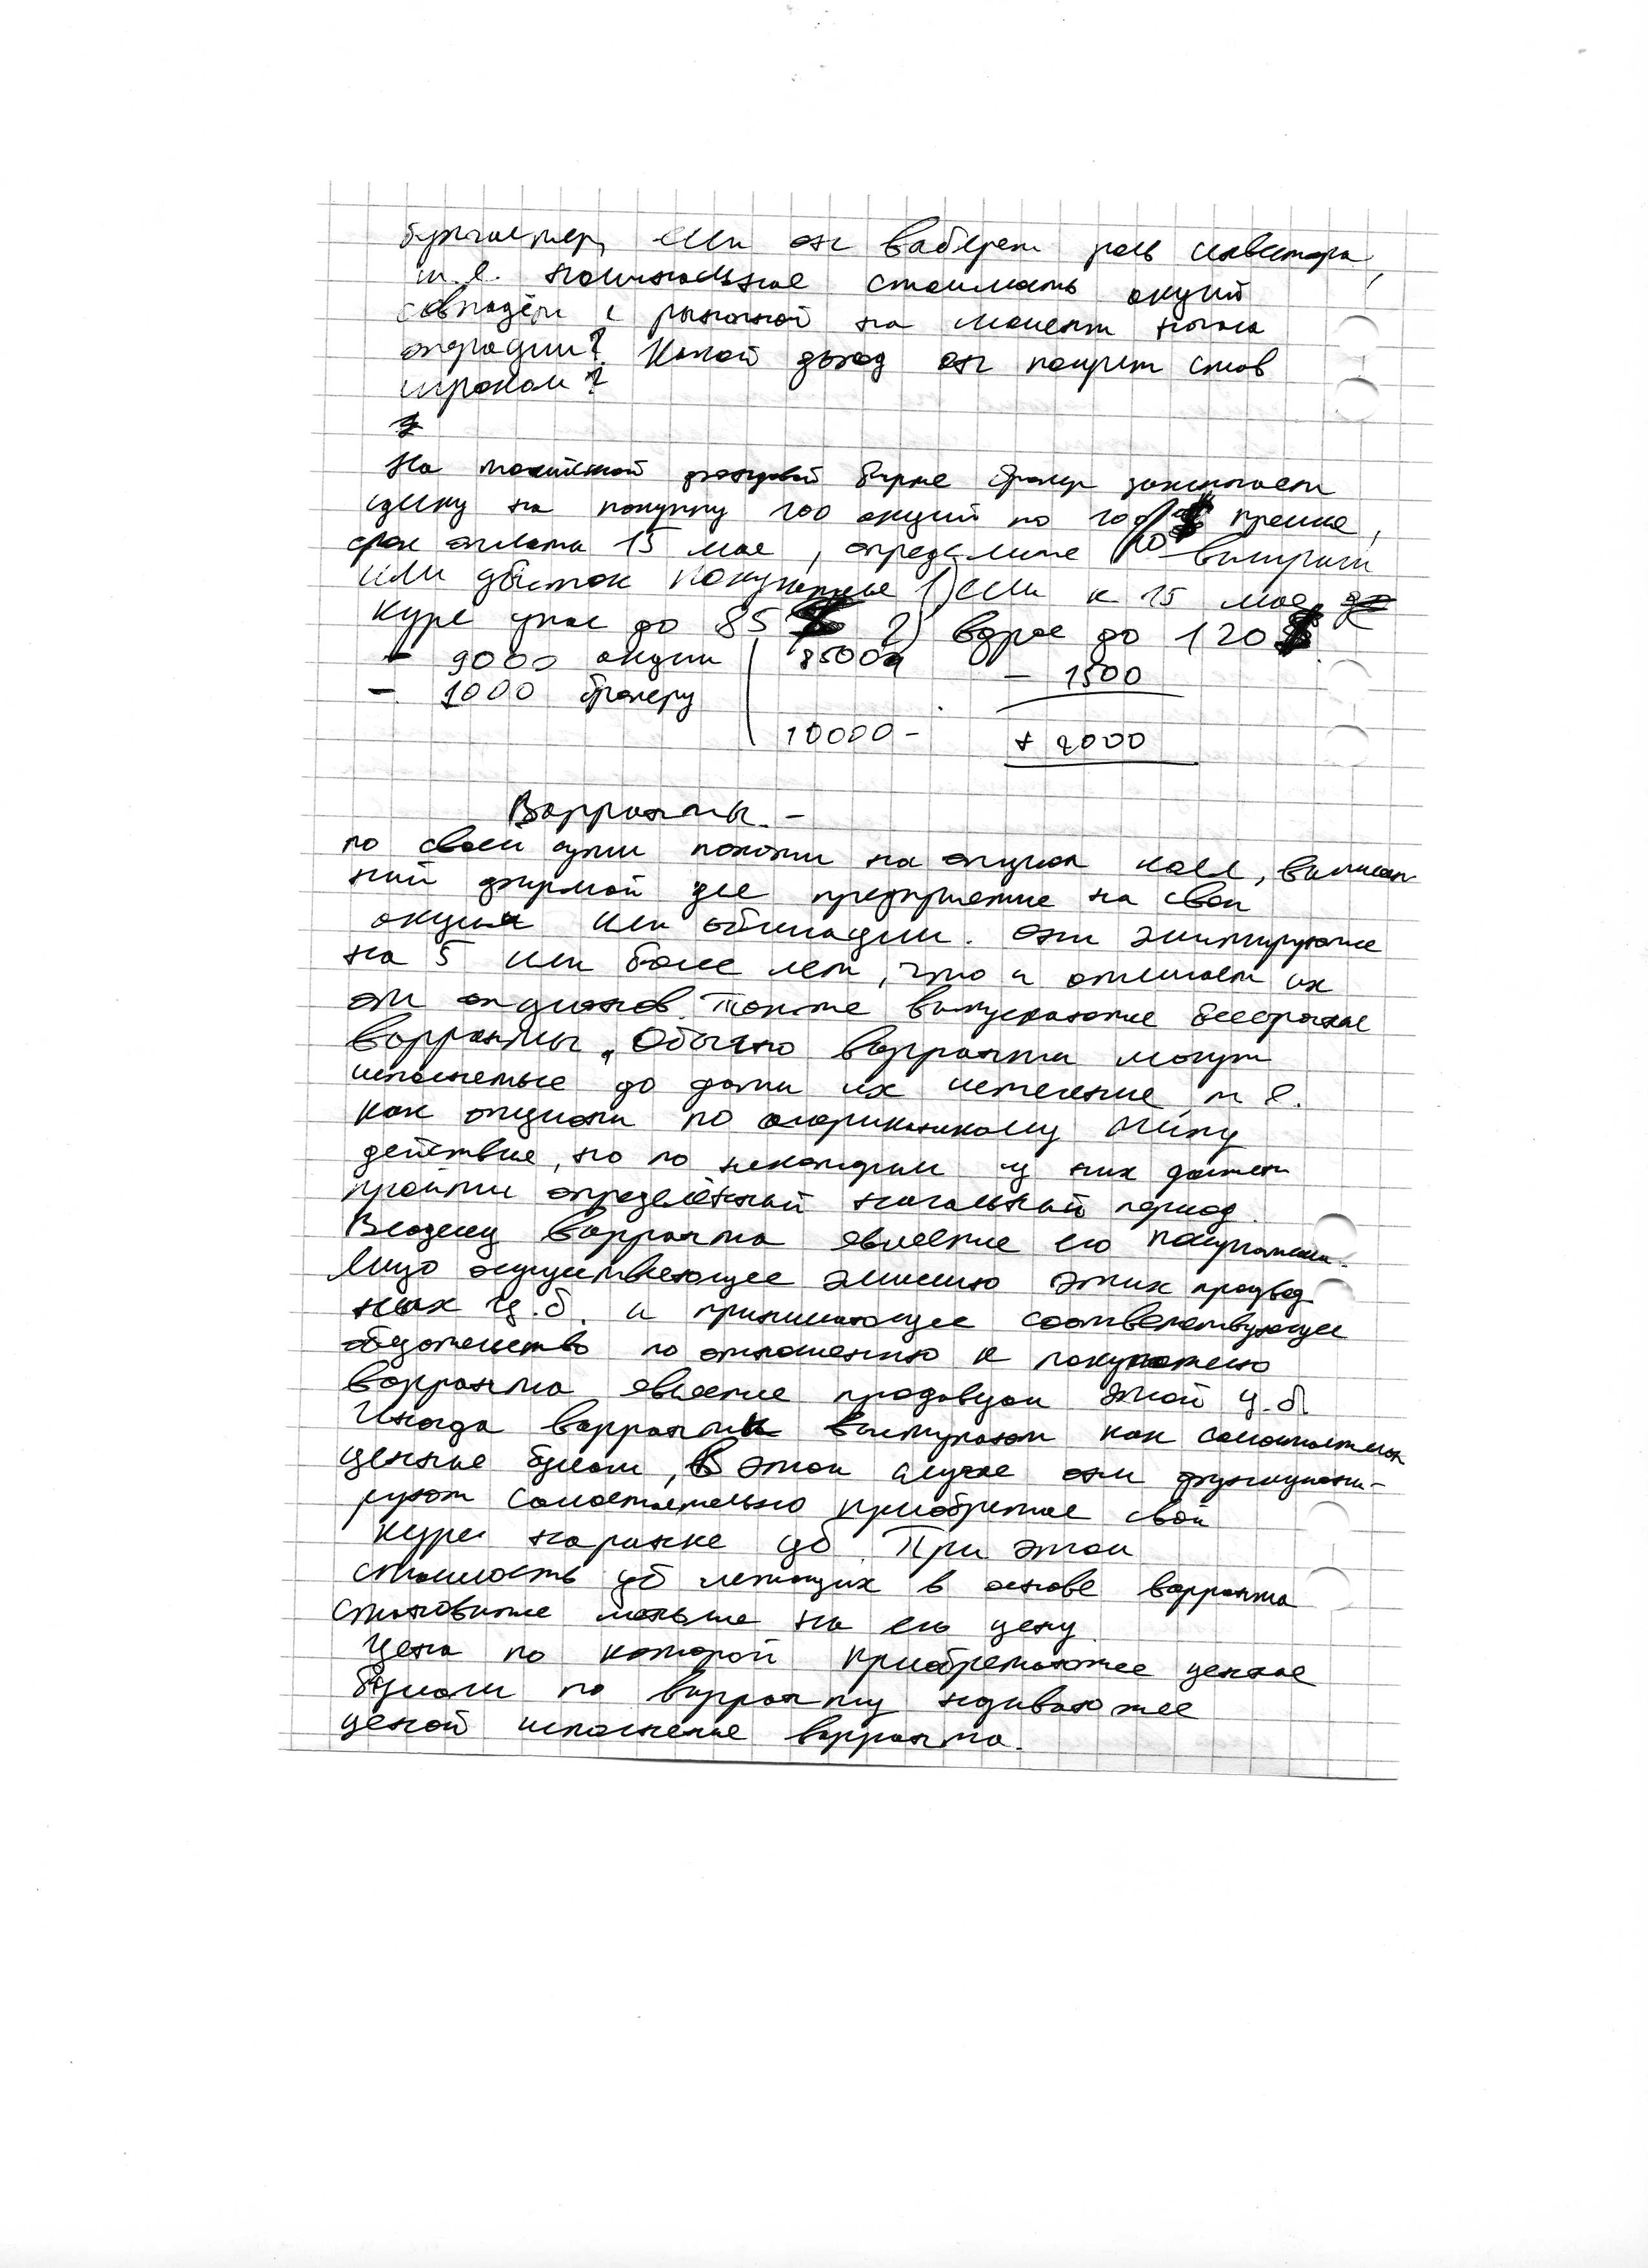 если он выберет роль инвестора,
т.е. номинальная стоимость акций
совпадёт с рыночной на момент начала
операции? Какой доход он получит став
игроком?
На фондовой бирже брокер заключает
сделку на покупку 100 акций по 10 премия,
срок оплаты 15 мая, определите выигрыш
или убыток покупателя 1) если к 15 мая
курс упал до 85 2) возрос до 120
- 9000 акции 85000 - 1500
- 1000 брокеру
10000 - + 2000
Варранты. -
по своей сути похожи на опцион колл, выписан
ный фирмой для предприятие на свои
акции или облигации. Они эмитируются
на 5 или более лет, что и отличает их
от опционов. Также выпускаются бессрочные
варранты. Обычно варранты могут
исполняться до даты их истечения, т.е.
как опционы по американскому типу
действия, но по некоторым из них должен
пройти определённый начальный период.
Владелец варранта является его покупателем.
Лицо осуществляющее эмиссию этих производ
ных ц.б. и принимающее соответствующее
обязательство по отношению к покупателю
варранта является продавцом этой ц.б.
Иногда варранты выступают как самостоятельные
ценные бумаги, В этом случае они функциони-
руют самостоятельно приобретая свой
курс на рынке цб. При этом
стоимость цб лежащих в основе варранта
становится меньше на его цену.
Цена по которой приобретаются ценные
бумаги по варранту называются
ценой исполнения варранта.